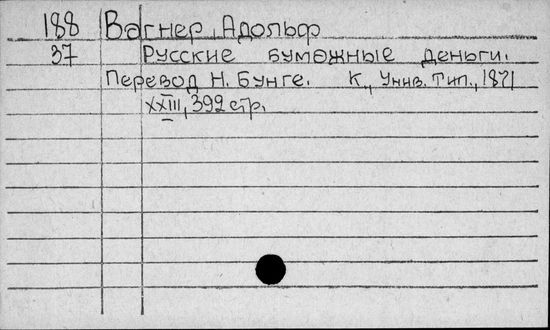 188 Вагнер, Адольф
37 Русские бумажные деньги.
Перевод Н. Бунге. К., Унив. Тип., 1871
XXIII, 392 стр.